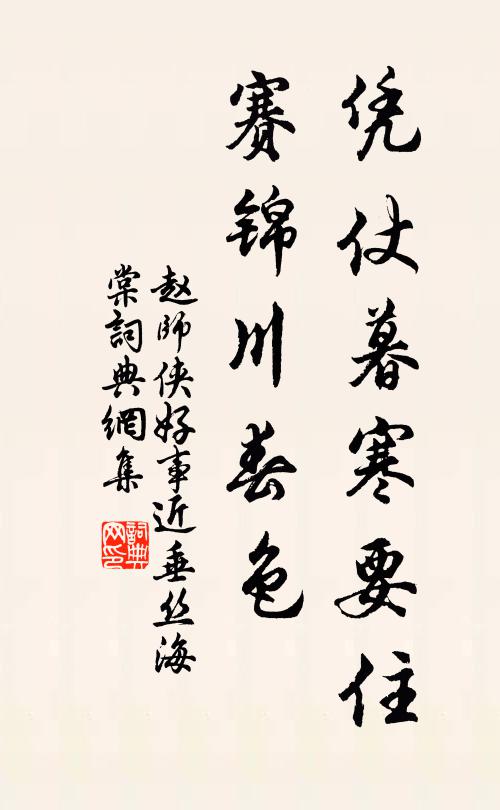 凭仗暮寒要住
赛锦川春色
赵师侠好事近垂丝海
棠詞典網集
詞典
网印